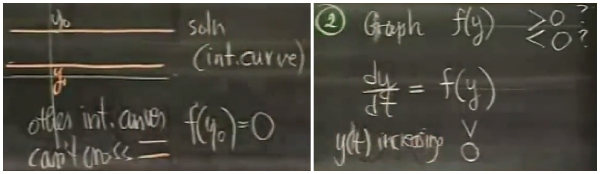 y₀
soln
(int. curve)
y₁
other int. curves
can't cross
f(y₀)=0
② Graph f(y) >0 ?
<0 ?
dy/dt = f(y)
y(t) increasing
∨
0